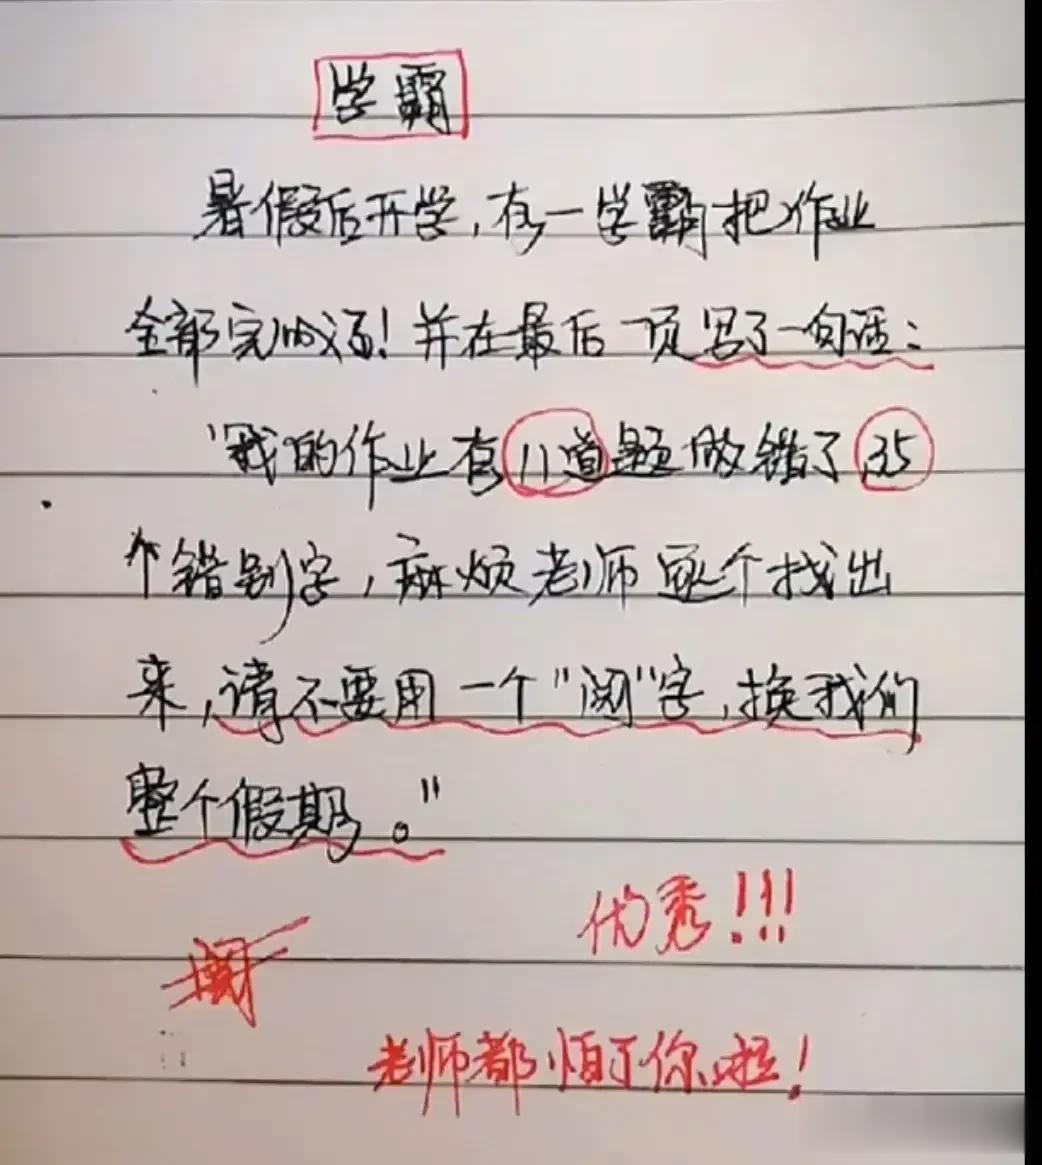 学霸
暑假后开学,有一学霸把作业
全部完成了!并在最后一页写了一句话:
"我的作业有11道题做错了35
个错别字,麻烦老师逐个找出
来,请不要用一个"阅"字,换我们
整个假期。"
优秀!!!
阅
老师都怕了你啦!